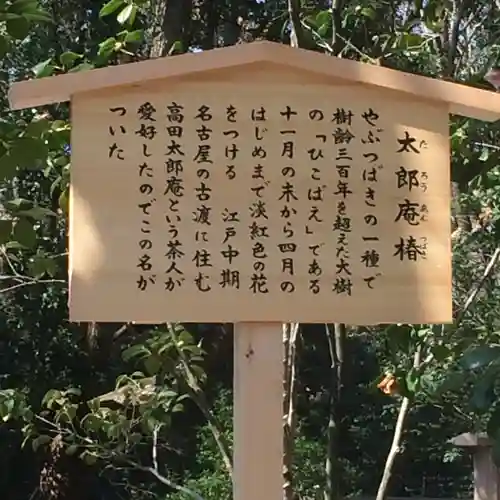 太郎庵椿
たろうあんつばき
やぶつばきの一種で
樹齢三百年を超えた大樹
の「ひこばえ」である
十一月の末から四月の
はじめまで淡紅色の花
をつける　江戸中期
名古屋の古渡に住む
高田太郎庵という茶人が
愛好したのでこの名が
ついた